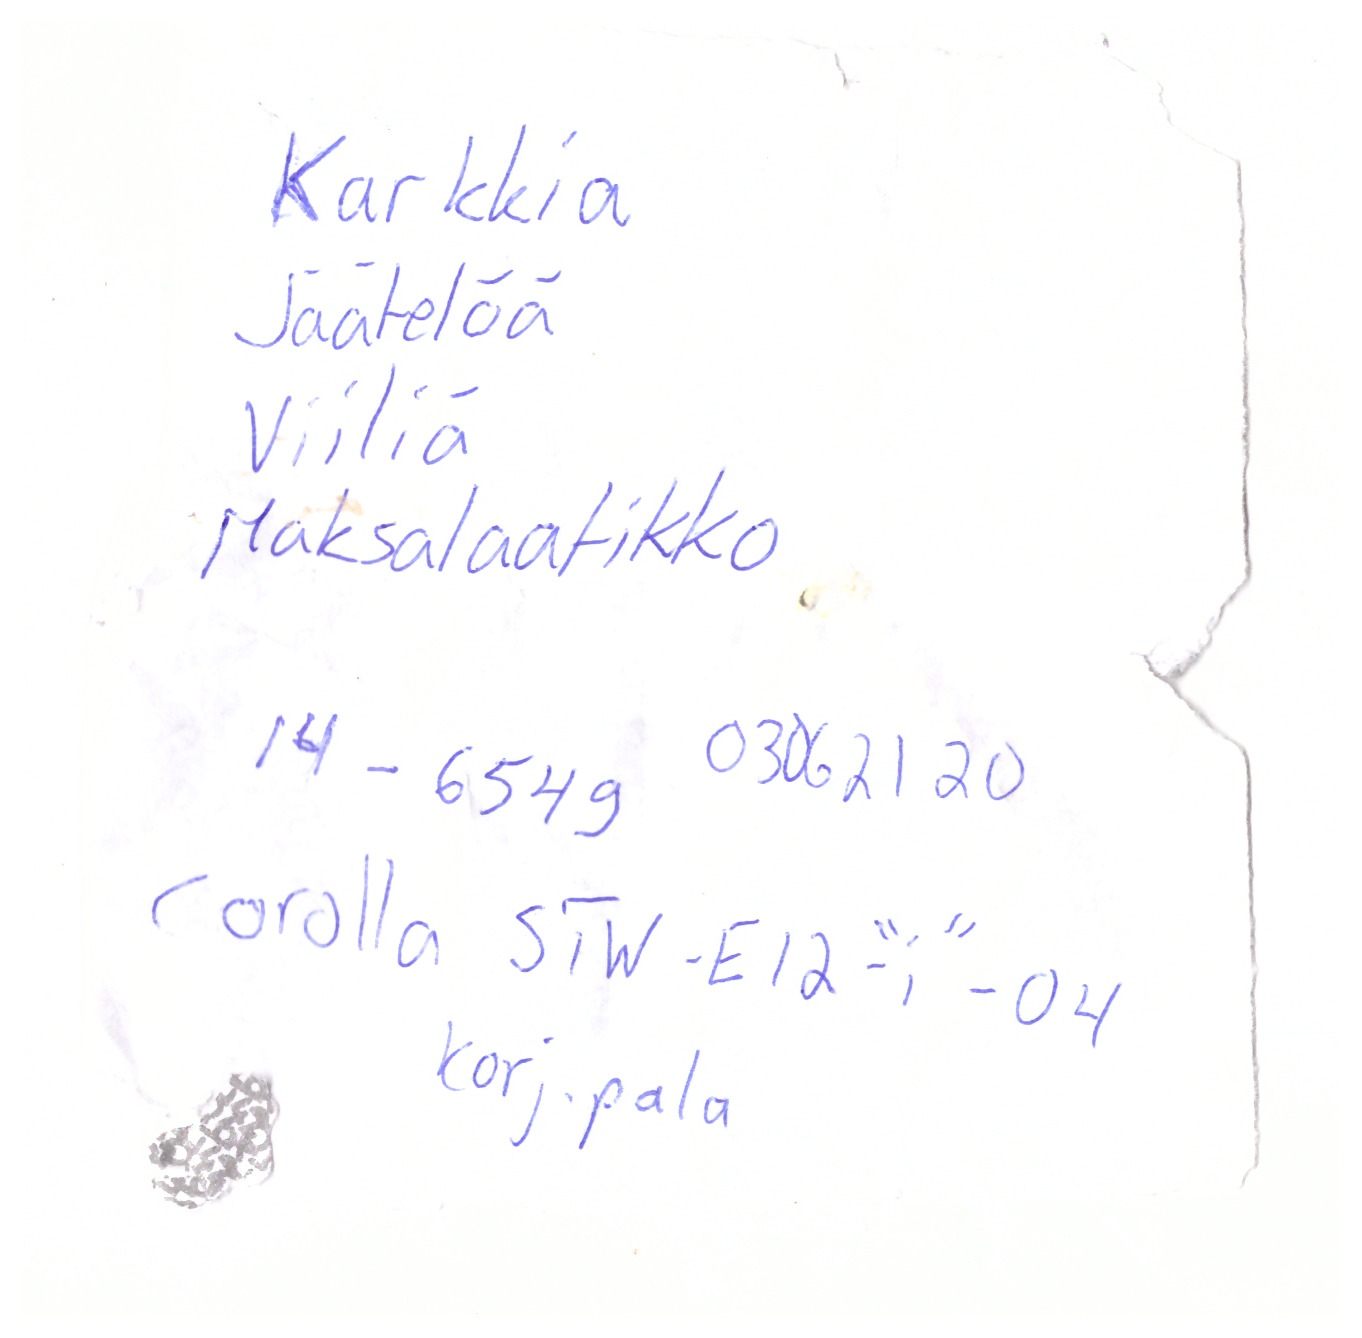 Karkkia
Jäätelöä
Viiliä
Maksalaatikko
14 - 6549 03062120
Corolla STW -E12 -"i" -04
korj.pala